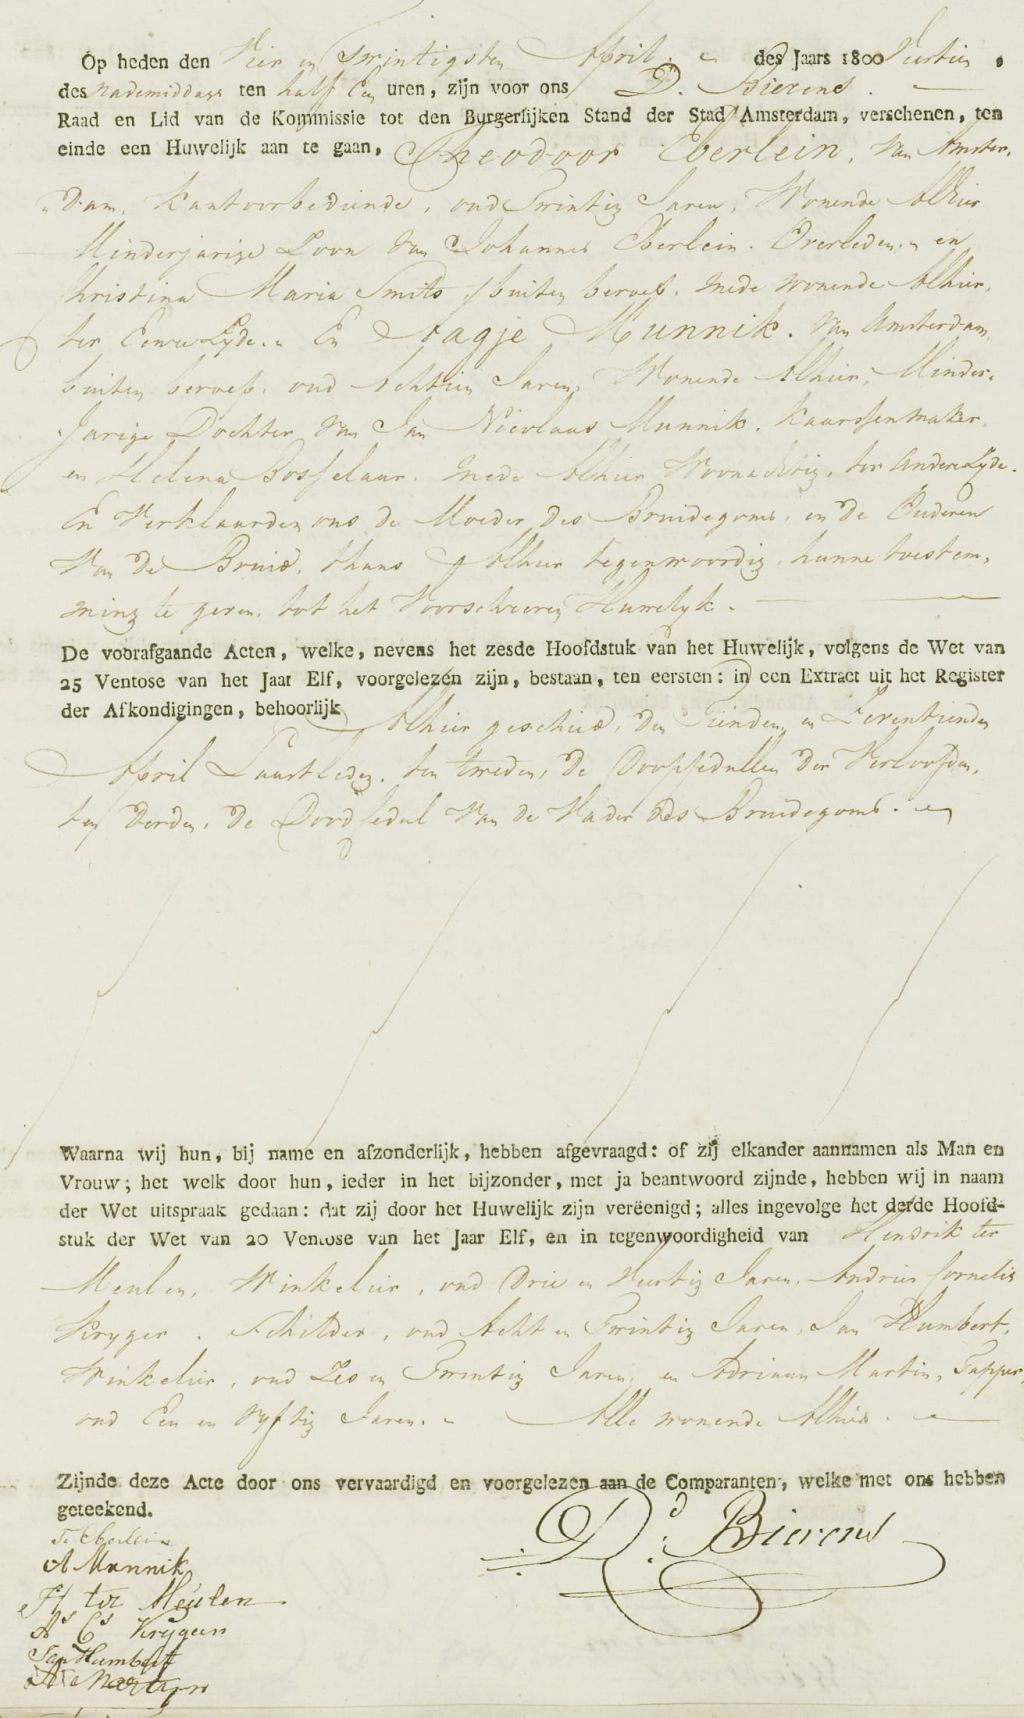 Op heden den Vier en Twintigsten April des Jaars 1800 Veertien,
des nademiddags ten half Een uren, zijn voor ons D. Bierens
Raad en Lid van de Kommissie tot den Burgerlijken Stand der Stad Amsterdam, verschenen, ten
einde een Huwelijk aan te gaan, Theodoor Eberlein, van Amster,
„dam, kantoorbediende, oud Twintig Jaren, Wonende Alhier
Minderjarige Zoon van Johannes Eberlein. Overleden. en
Christina Maria Smits, buiten beroep. mede wonende Alhier,
ter Eenre Zyde. En Aagje Munnik. van Amsterdam,
buiten beroep, oud Achttien Jaren, Wonende Alhier, Minder,
Jarige Dochter van Jan Nicolaas Munnik. kaarssenmaker,
en Helena Bosselaar. mede Alhier Woonachtig, ter Andere Zyde.
En Verklaarden ons de Moeder des Bruidegoms, en de Ouderen
van de Bruid, thans Alhier tegenwoordig, hunne toestem,
ming te geven, tot het Voorschreeven Huwelyk.
De voorafgaande Acten, welke, nevens het zesde Hoofdstuk van het Huwelijk, volgens de Wet van
25 Ventose van het Jaar Elf, voorgelezen zijn, bestaan, ten eersten: in een Extract uit het Register
der Afkondigingen, behoorlijk Alhier geschied, den Tienden, en Zeventienden
April Laastleden. ten tweeden, de Doopsedullen der Verloofden,
ten derden, de Doodsedul van de Vader des Bruidegoms.
Waarna wij hun, bij name en afzonderlijk, hebben afgevraagd: of zij elkander aannamen als Man en
Vrouw; het welk door hun, ieder in het bijzonder, met ja beantwoord zijnde, hebben wij in naam
der Wet uitspraak gedaan: dat zij door het Huwelijk zijn vereenigd; alles ingevolge het derde Hoofd-
stuk der Wet van 20 Ventose van het Jaar Elf, en in tegenwoordigheid van Hendrik ter
Meulen, Winkelier, oud Drie en Veertig Jaren, Andries Cornelis
Kryger. Schilder, oud Acht en Twintig Jaren, Jan Humbert,
Winkelier, oud Zes en Twintig Jaren, en Adriaan Martin, Tapper,
oud Een en Vyftig Jaren. Alle wonende Alhier.
Zijnde deze Acte door ons vervaardigd en voorgelezen aan de Comparanten, welke met ons hebben
geteekend.
T. Eberlein
A Munnik
H ter Meulen
As Cs Krygen
Jan Humbert
A Martyn
Dd. Bierens